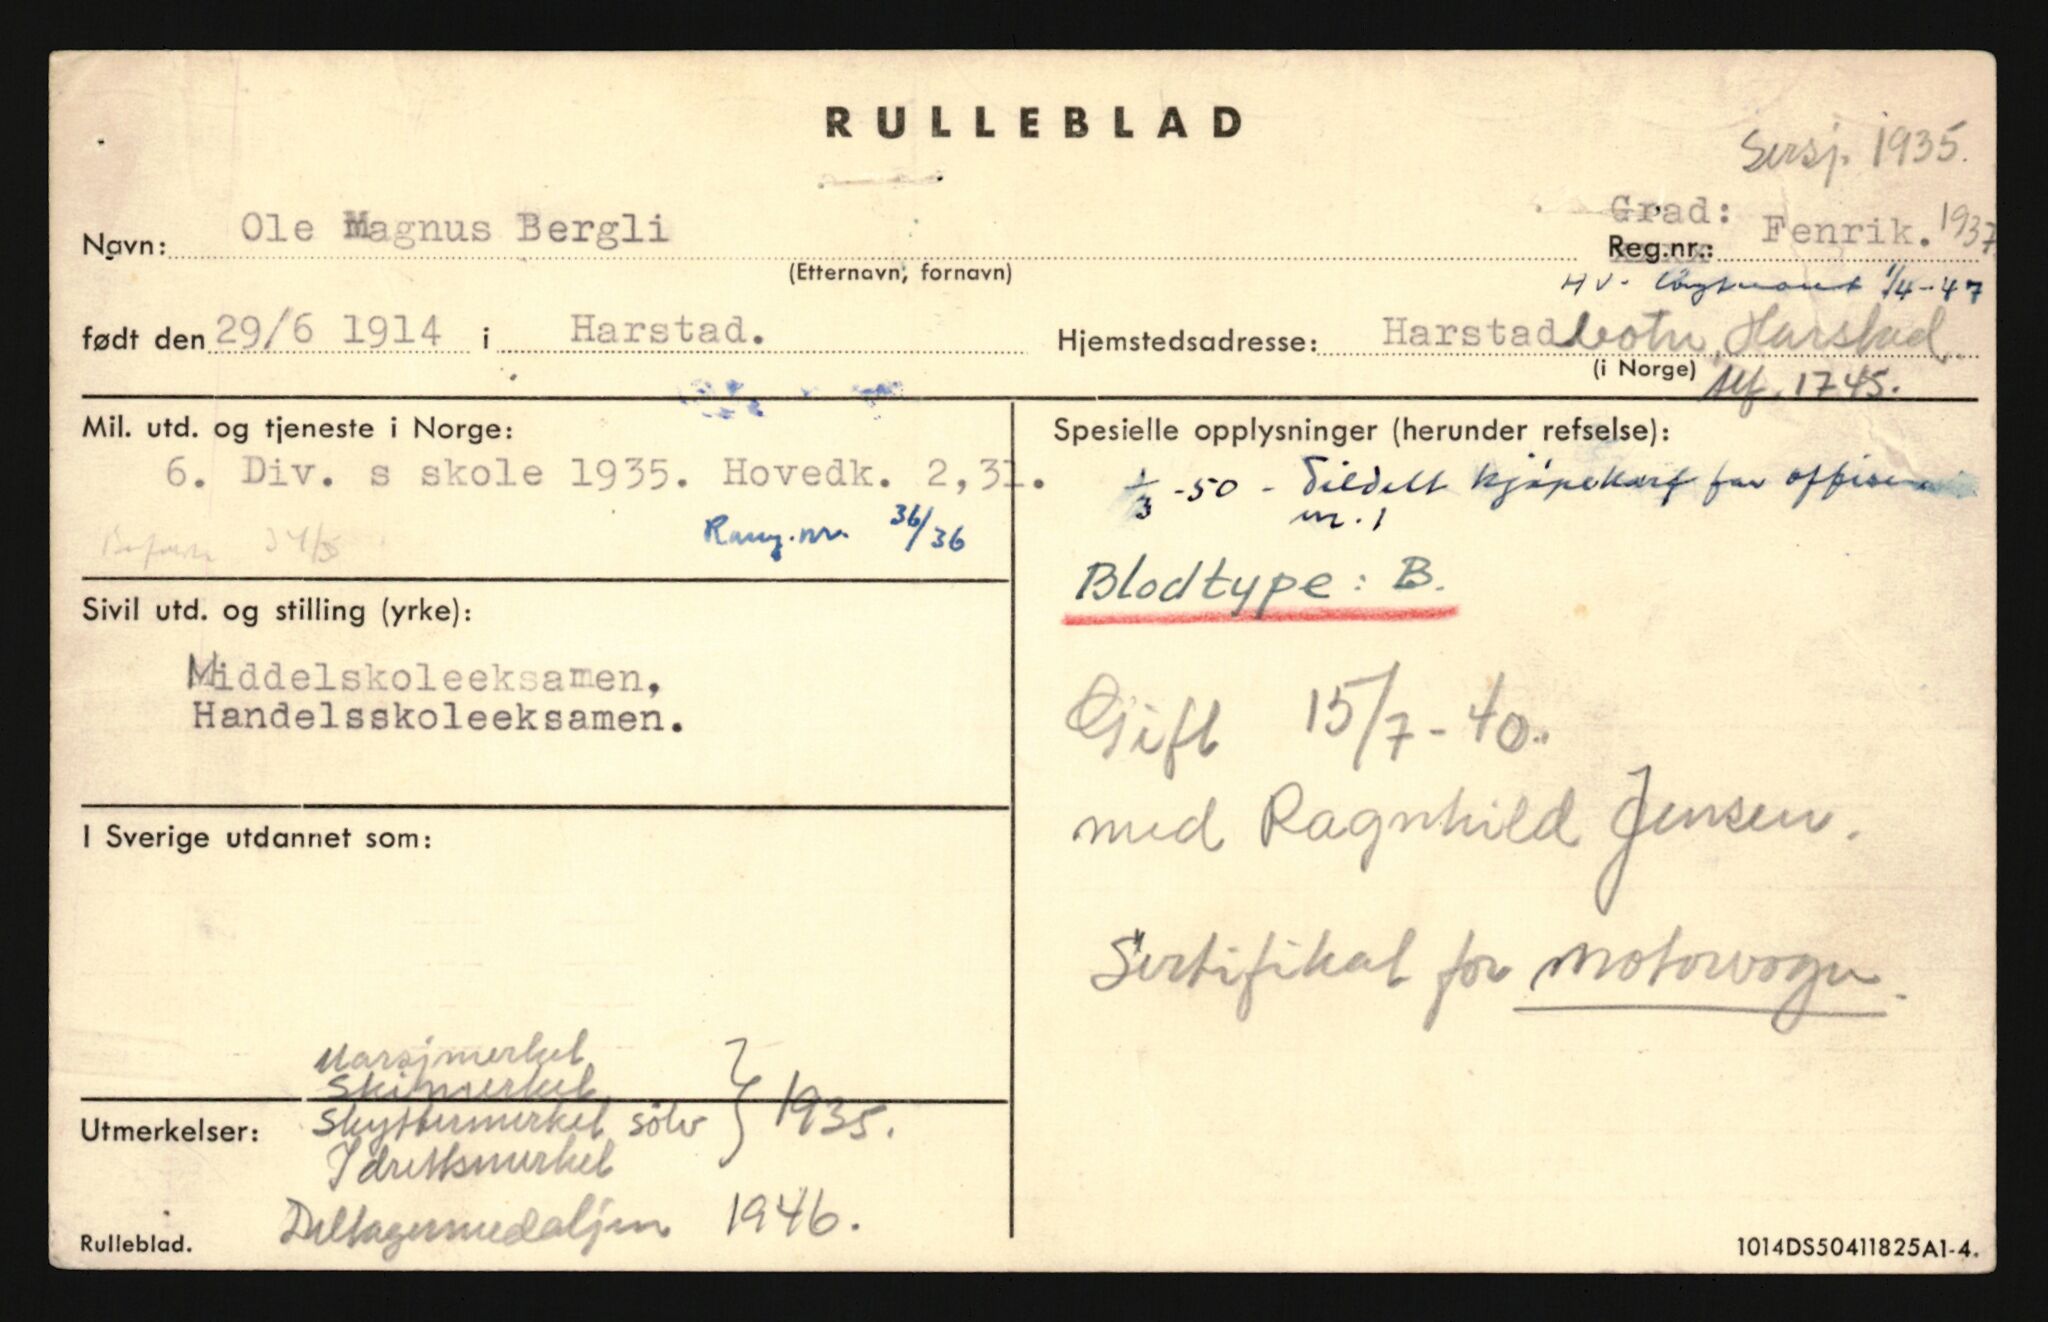 RULLEBLAD
Sersj. 1935.
Grad:
Navn: Ole Magnus Bergli Reg.nr.: Fenrik. 1937
(Etternavn, fornavn)
HV. løytnant 1/4-47
født den 29/6 1914 i Harstad. Hjemstedsadresse: Harstadbotn, Harstad
(i Norge) tlf. 1745.
Mil. utd. og tjeneste i Norge:
6. Div. s skole 1935. Hovedk. 2,31.
Rang.nr. 36/36
Sivil utd. og stilling (yrke):
Middelskoleeksamen,
Handelsskoleeksamen.
I Sverige utdannet som:
Marsjmerket
Skimerket
Utmerkelser: Skyttermerket sölv } 1935.
Idrettsmerket
Deltagermedaljen 1946.
Rulleblad.
Spesielle opplysninger (herunder refselse):
1/3-50 - Tildelt kjøpekort for
nr. 1
Blodtype: B.
Gift 15/7-40.
med Ragnhild Jensen.
Sertifikat for motorvogn.
1014DS50411825A1-4.